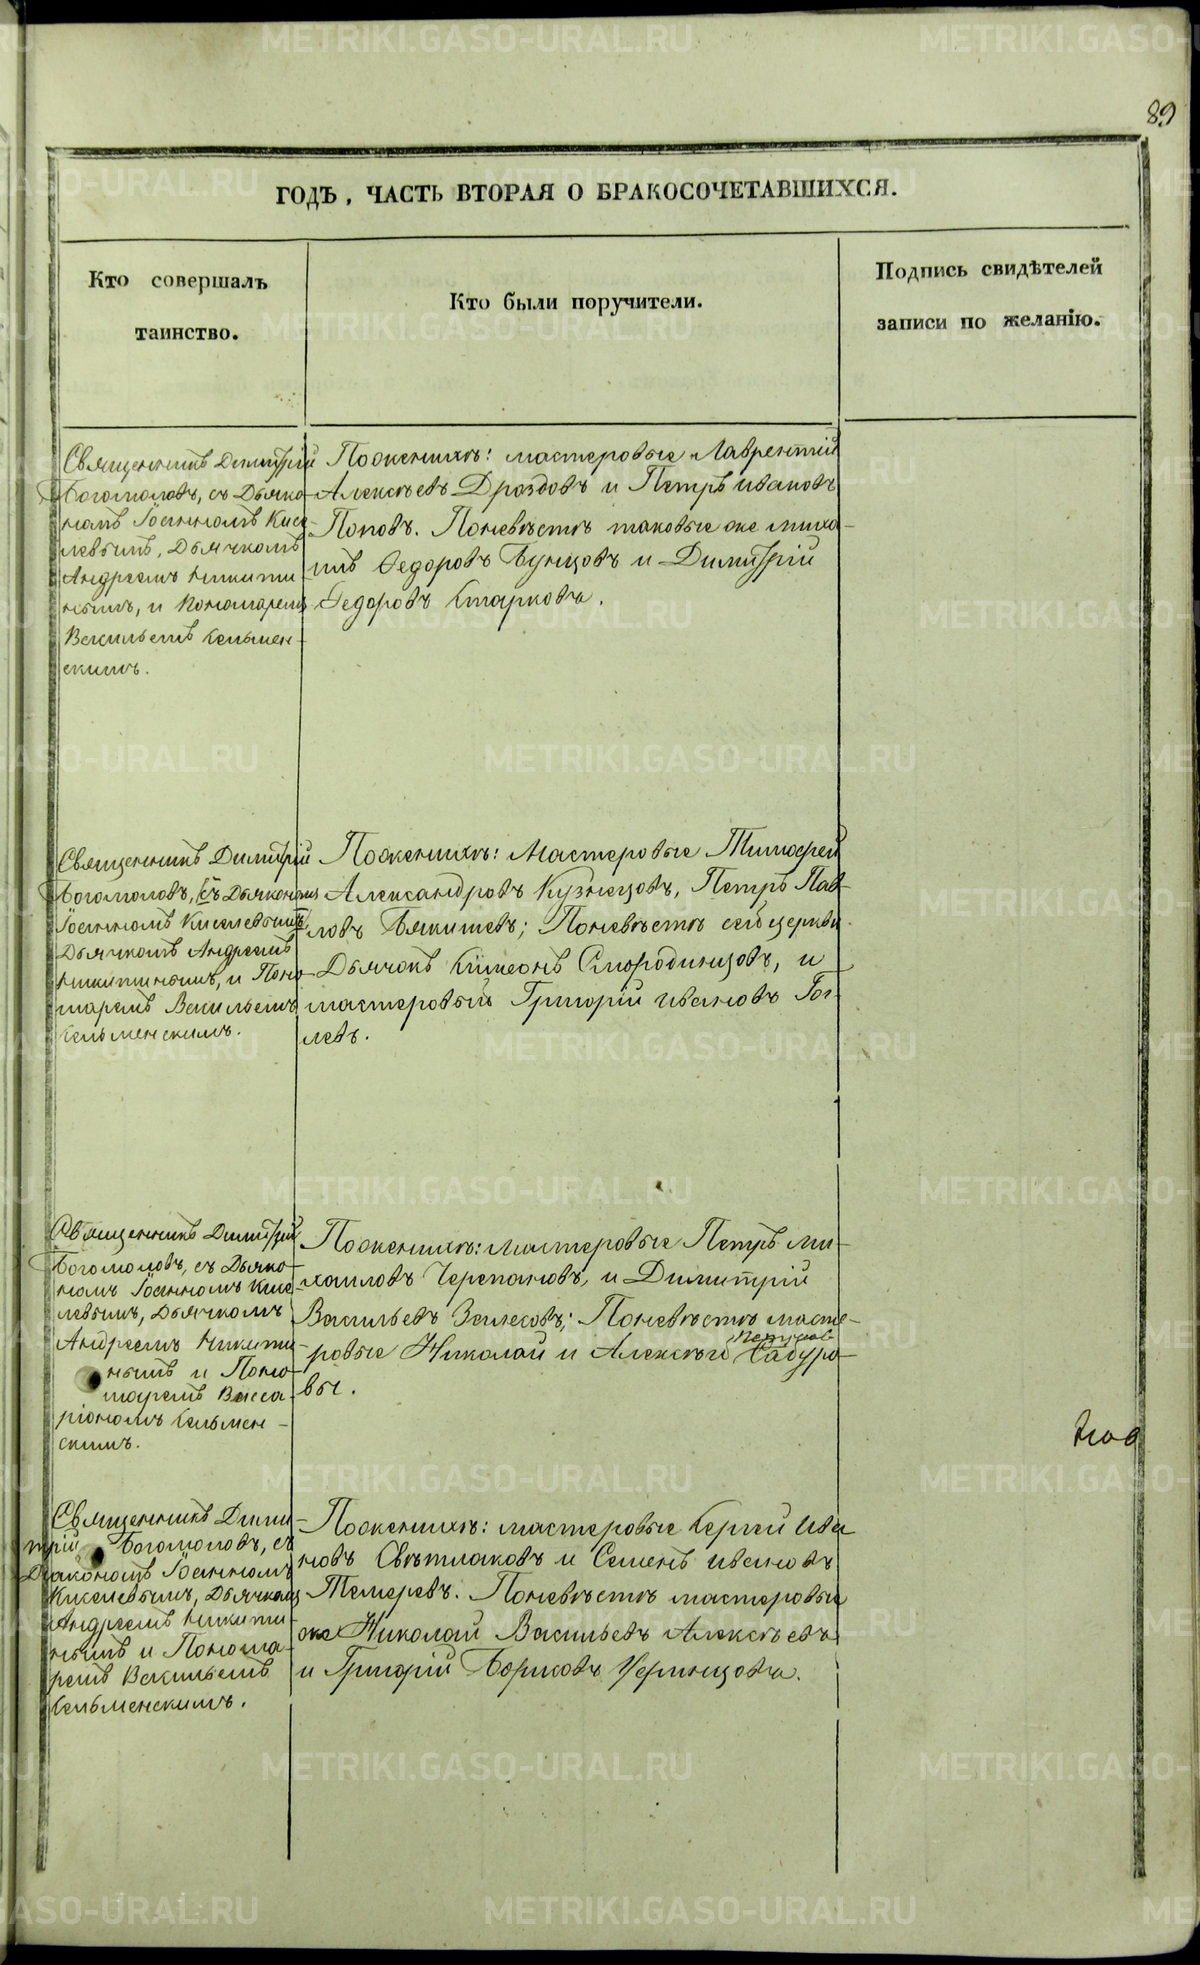 89
ГОДѢ, ЧАСТЬ ВТОРАЯ О БРАКОСОЧЕТАВШИХСЯ.
Кто совершалъ
таинство.
Кто были поручители.
Подпись свидѣтелей
записи по желанію.
Священникъ Димитрій
Богомоловъ, съ Дьяко-
номъ Іоанномъ Кисе-
левымъ, Дьячкомъ
Андреемъ Никити-
нымъ, и Пономаремъ
Васильемъ Сельмен-
скимъ.
Поженихѣ: мастеровые Лаврентій
Алексѣевъ Дроздовъ и Петръ Ивановъ
Поповъ. Поневѣстѣ таковые же Миха-
илъ Федоровъ Бунцовъ и Димитрій
Федоровъ Старковъ.
Священникъ Димитрій
Богомоловъ, съ Дьякономъ
Іоанномъ Киселевымъ
Дьячкомъ Андреемъ
Никитинымъ, и Поно-
маремъ Васильемъ
Сельменскимъ.
Поженихѣ: Мастеровые Тимофей
Александровъ Кузнецовъ, Петръ Пав-
ловъ Бякишевъ; Поневѣстѣ сей церкви
Дьячокъ Симеонъ Смородинцовъ, и
мастеровый Григорій Ивановъ Гог-
левъ.
Священникъ Димитрій
Богомоловъ, съ Дьяко-
номъ Іоанномъ Кисе-
левымъ, Дьячкомъ
Андреемъ Никити-
нымъ и Поно-
маремъ Висса-
ріономъ Сельмен-
скимъ.
Поженихѣ: Мастеровые Петръ Ми-
хаиловъ Черепановъ, и Димитрій
Васильевъ Залесовъ; Поневѣстѣ масте-
ровые Николай и Алексѣй Сабуро-
вы.
Священникъ Дими-
трій Богомоловъ, съ
Діакономъ Іоанномъ
Киселевымъ, Дьячкомъ
Андреемъ Никити-
нымъ и Понома-
ремъ Васильемъ
Сельменскимъ.
Поженихѣ: мастеровые Сергей Ива
новъ Свѣтлаковъ и Семенъ Ивановъ
Темеревъ. Поневѣстѣ мастеровые
же Николай Васильевъ Алексѣевъ
и Григорій Борисовъ Черницовъ.
METRIKI.GASO-URAL.RU